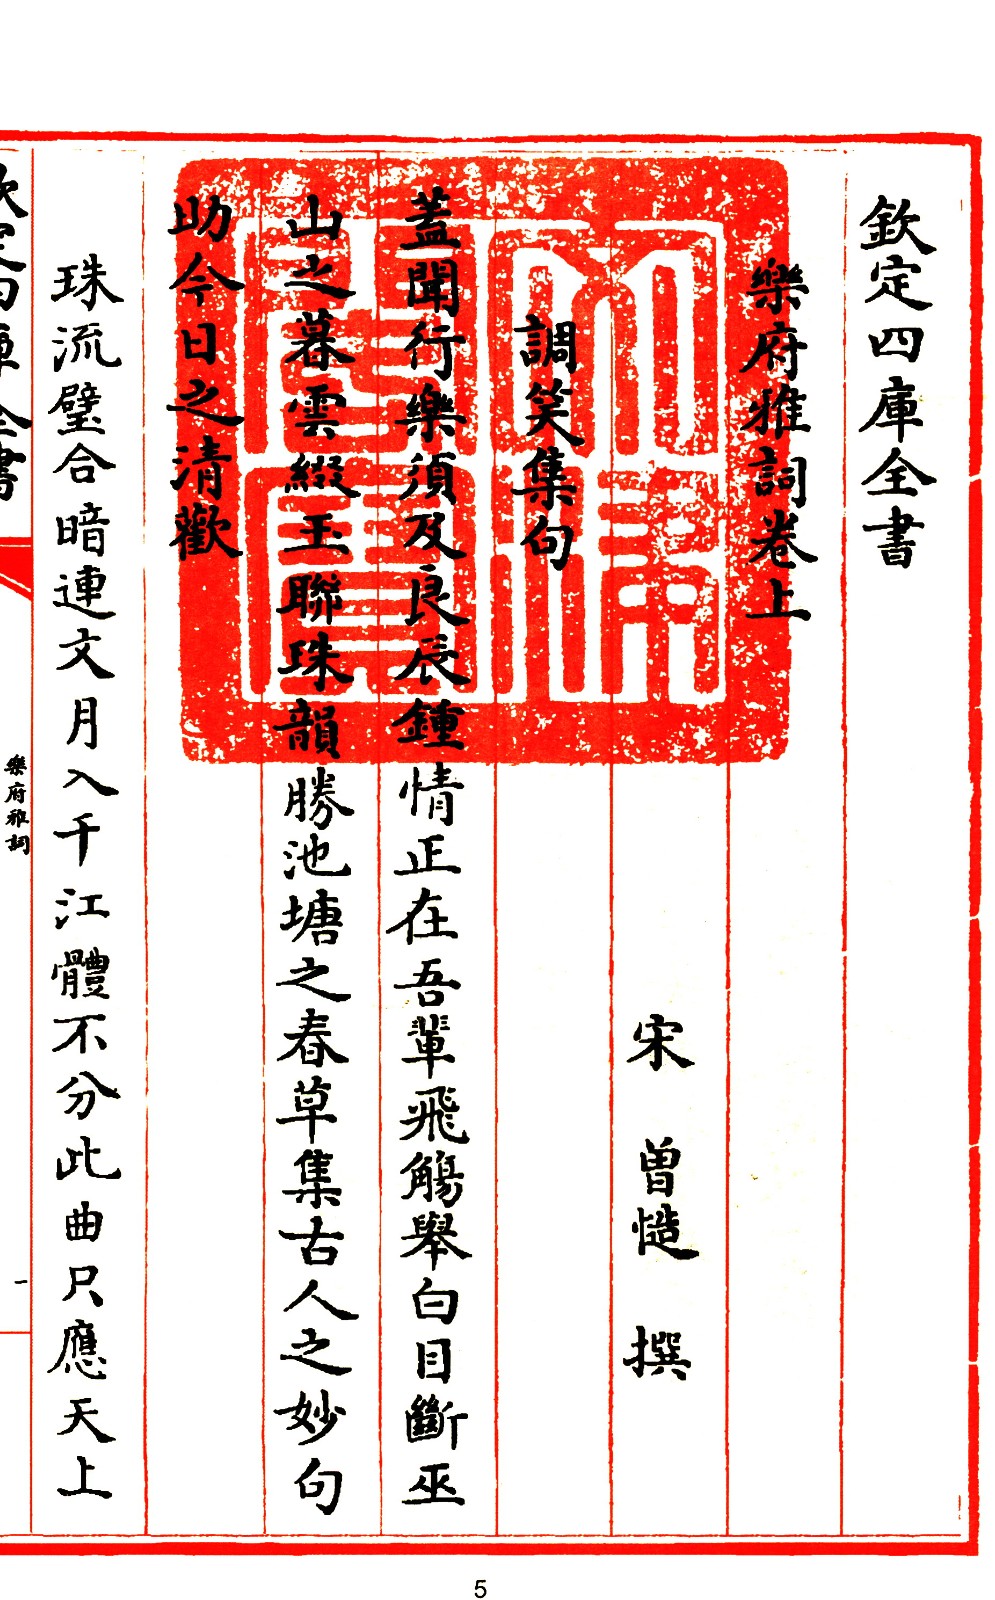 欽定四庫全書
樂府雅詞卷上
宋 曾慥 撰
調笑集句
蓋聞行樂須及良辰鍾情正在吾輩飛觴舉白目斷巫
山之暮雲綴玉聯珠韻勝池塘之春草集古人之妙句
助今日之清歡
珠流璧合暗連文月入千江體不分此曲只應天上
欽定四庫全書
樂府雅詞
一
5